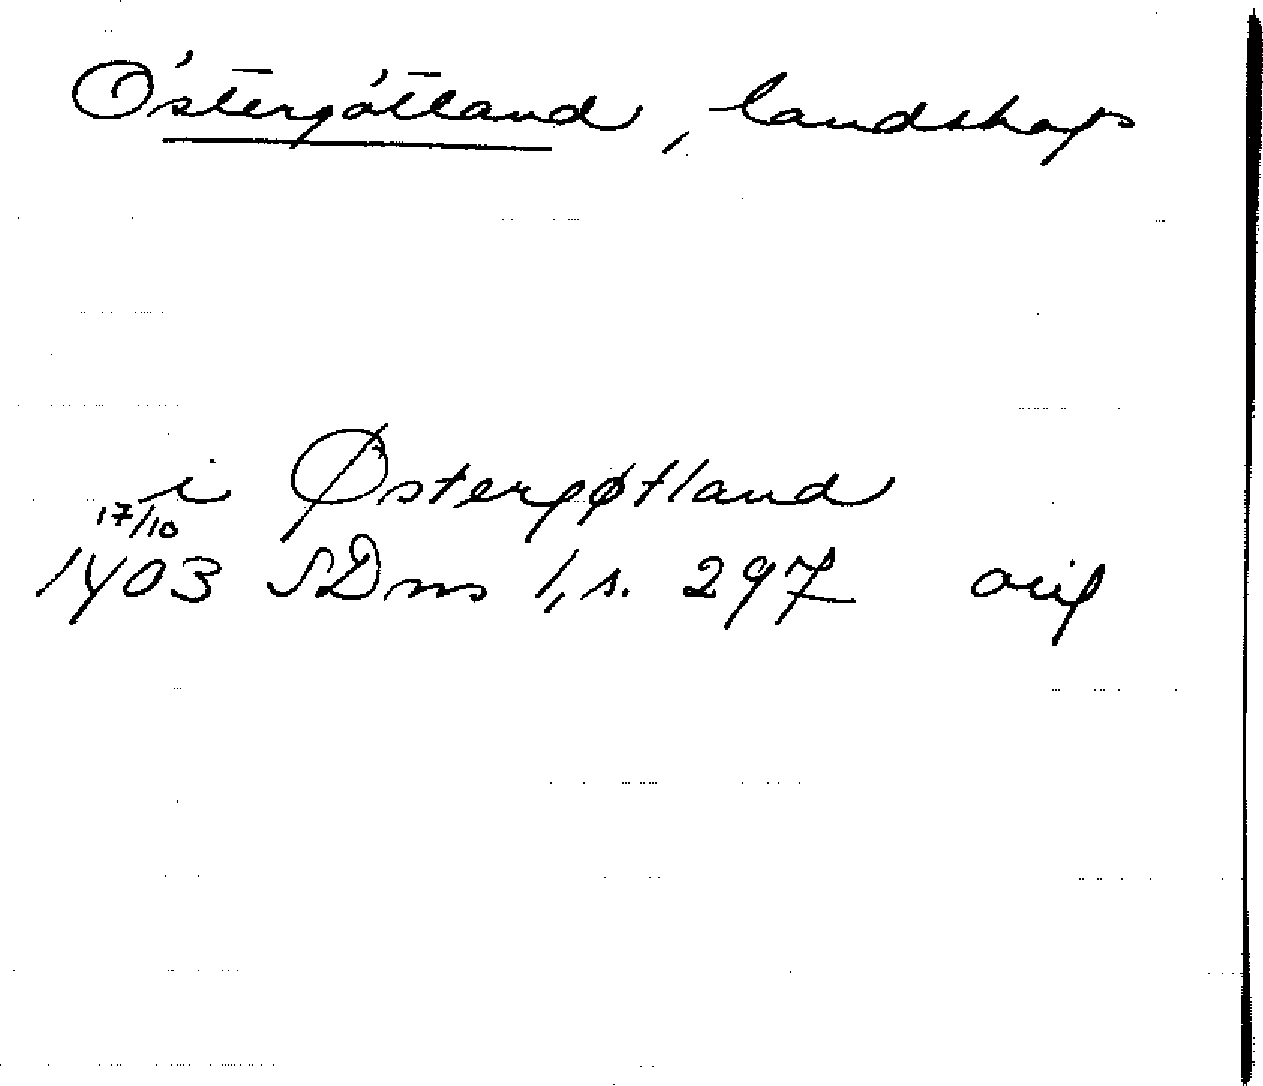 Östergötland, landskap
i Østergøtland
17/10
1403 SDns 1, s. 297 orig